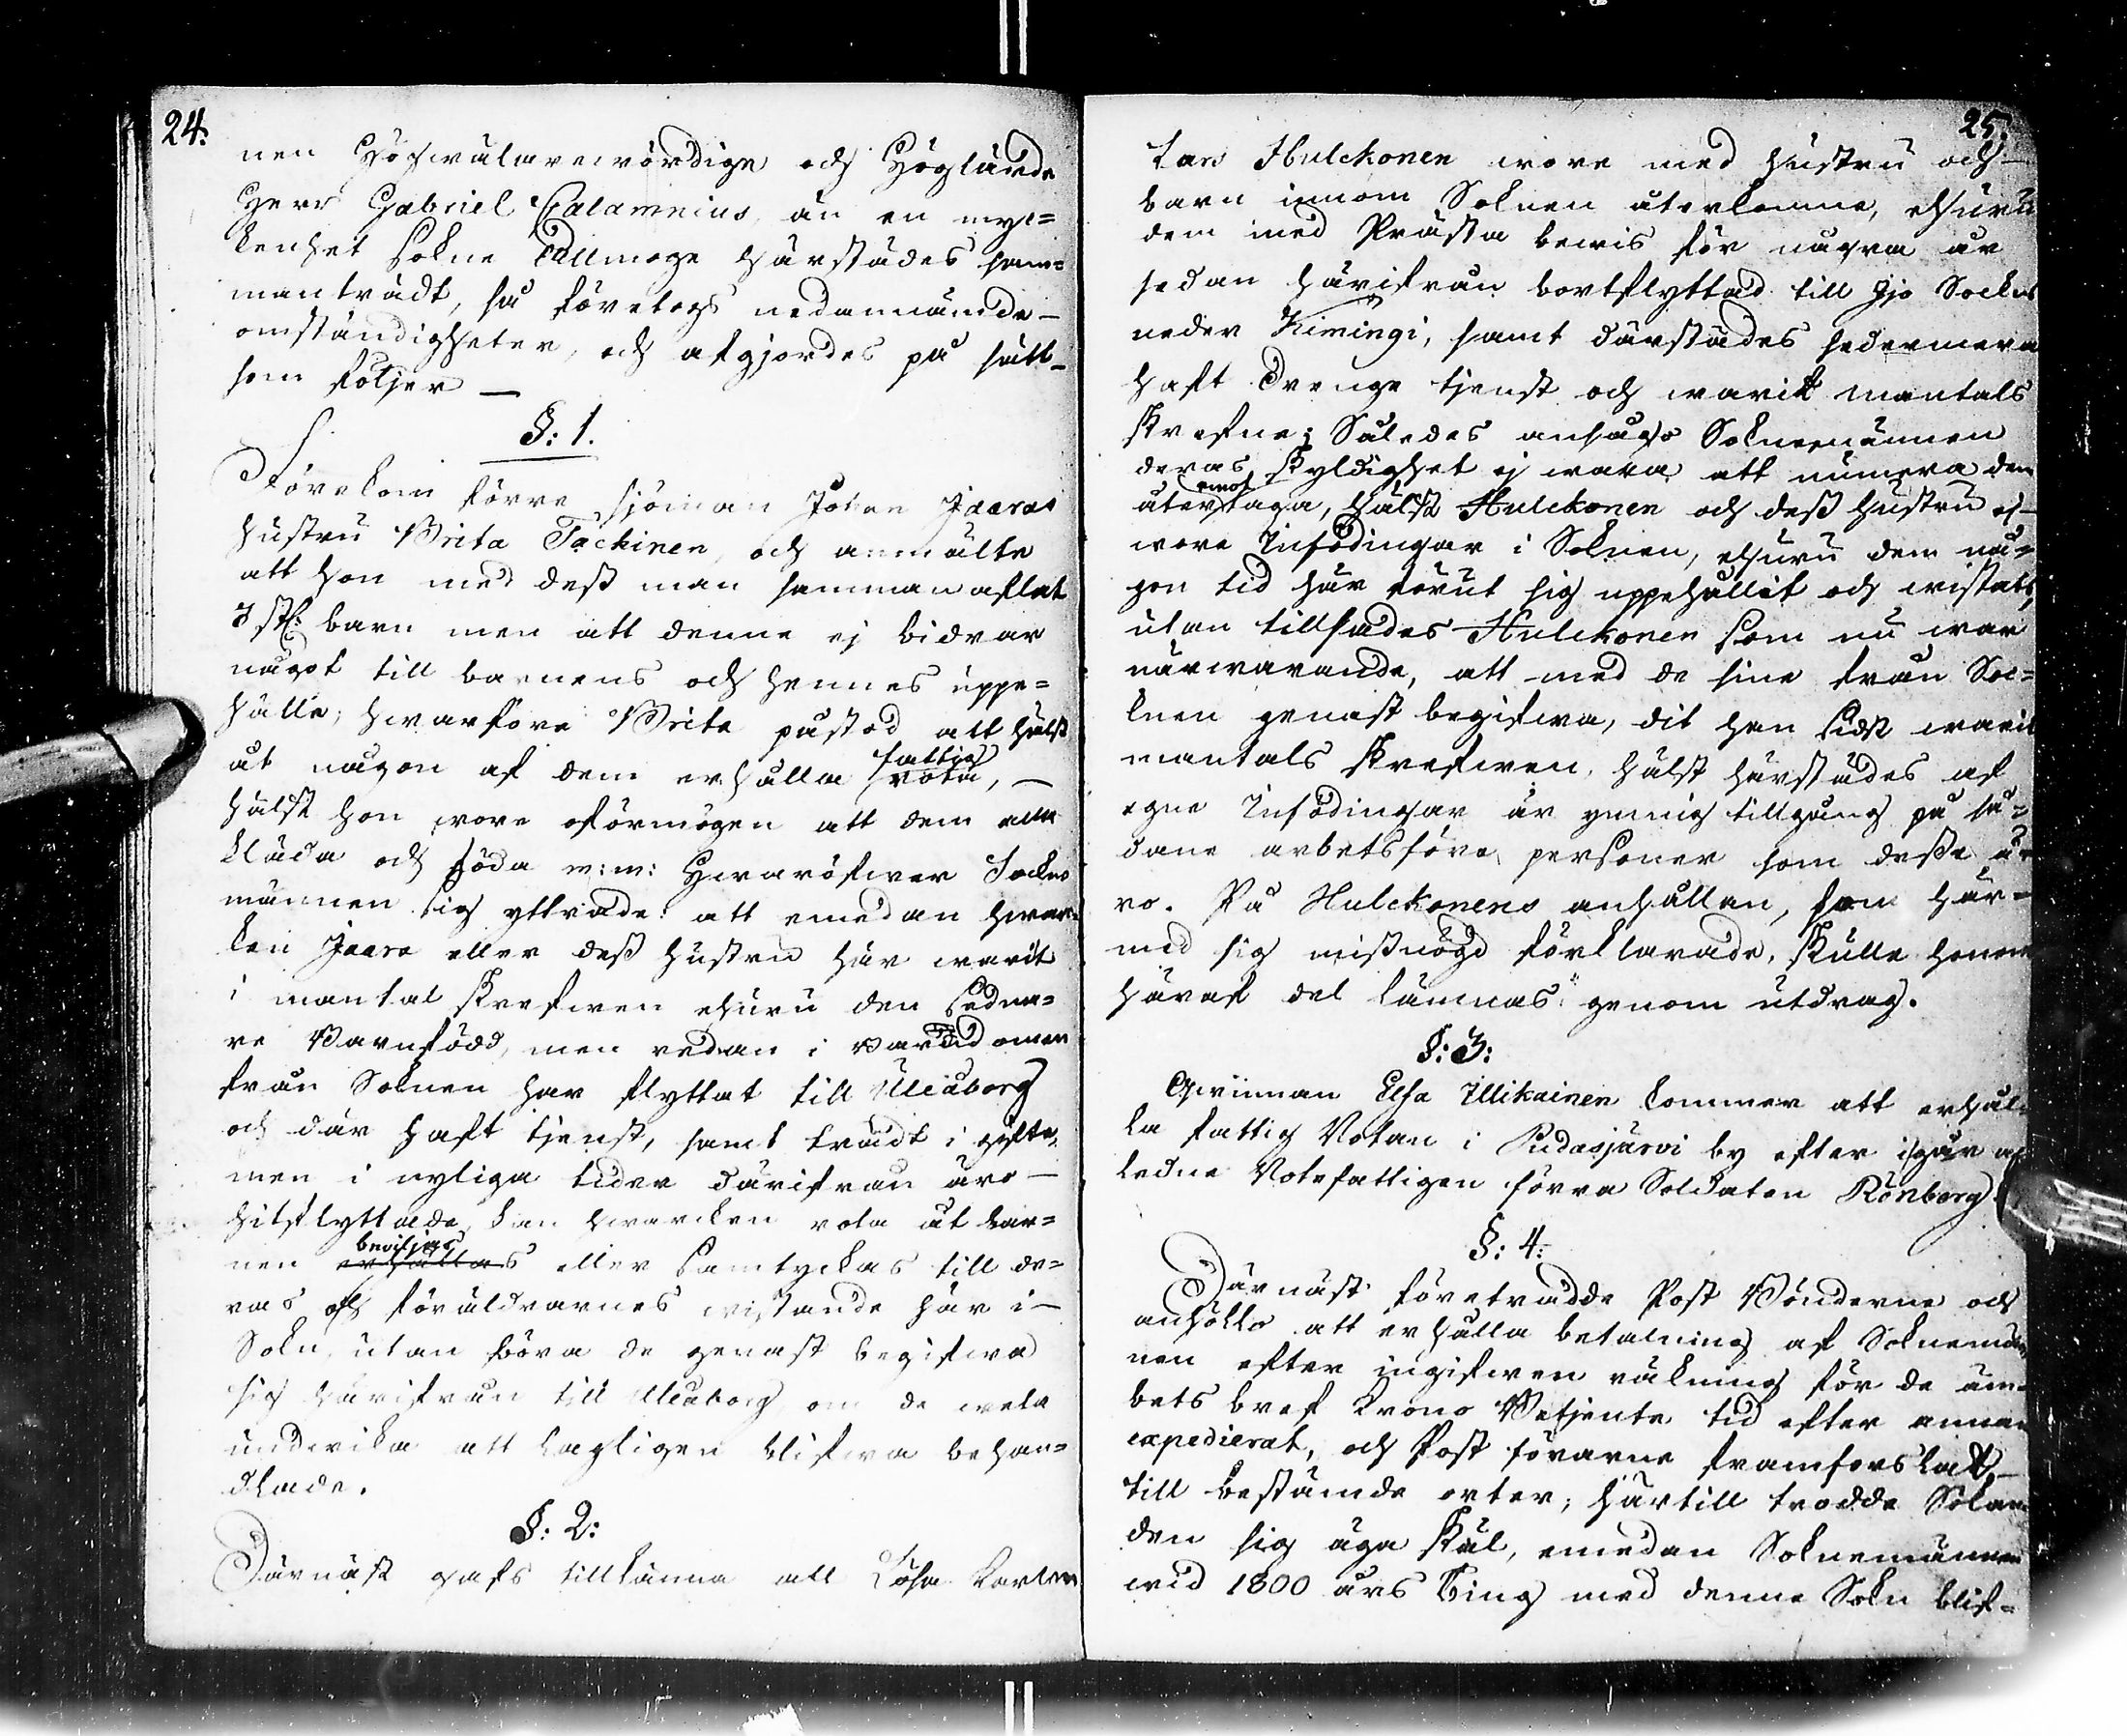 24.
nen Högwälärewördige och Höglärde
Herr Gabriel Calamnius, än en myc-
kenhet Sokne Allmoge härstädes sam-
manträdt, så företogs nedannämde
omständigheter, och afgjordes på sätt
som följer —
§: 1.
Förekom förre Sjöman Johan Jaaras
hustru Brita Tackinen, och anmälte
att hon med dess man samman aflat
7 st: barn men att denne ej bidrar
något till barnens och hennes uppe-
hälle; hwarföre Brita påstod att hälst
åt någon af dem erhålla fattig rota, —
hälst hon wore oförmögen att dem alla
kläda och föda m: m: Hwaröfwer Sockne
männen sig yttrade: att emedan hwar-
ken Jaara eller dess hustru här warit
i mantal skrefwen ehuru den sedna-
re Barnfödd, men redan i barndomen
från Soknen har flyttat till Uleåborg
och där haft tjenst, samt trädt i gifte,
men i nyliga tider därifrån äro —
hitflyttade, kan hwarcken rota åt bar-
nen beviljas erhållas eller samtyckas till de-
ras och föräldrarnes wistande här i —
Sokn, utan böra de genast begifwa
sig härifrån till Uleåborg om de wela
undwika att lagligen blifwa behan-
dlade.
§: 2:
Därnäst gafs tillkänna att Lösa Karlen
25.
tan Hulckonen wore med hustru och —
barn innom Soknen återkomne, ehuru
dem med Prästa bewis för några år
sedan härifrån bortflyttad till Ijo Sockns
neder Kimingi, samt därstädes sedermera
haft drenge tjenst och warit mantals
skrefne; Således ansågo Soknemännen
deras skyldighet ej wara att numera dem
åter emot taga, hälst Hulckonen och dess hustru ej —
wore Infödingar i Soknen, ehuru dem nå-
gon tid här förut sig uppehållit och wistats,
utan tillsades Hulckonen som nu war
närwarande, att med de sine från Soc-
knen genast begifwa, dit han sidst warit
mantals skrefwen, hälst härstädes af
egne Infödingar är ymnig tillgång på så-
dane arbetsföre personer som desse ä-
ro. På Hulckonens anhållan, som här-
med sig missnögd förklarade, skulle honom
häraf del lämnas genom utdrag.
§: 3:
Qwinnan Elsa Illikainen kommer att erhål-
la fattig Rotan i Pudasjärvi by efter igår af
ledne Rotefattigen förra Soldaten Rönberg.
§: 4:
Därnäst företrädde Post Bönderne och
ansökte att erhålla betalning af Soknemän
nen efter ingifwen räkning för de äm-
bets bref Krono Betjente tid efter annan
expedierat, och Post förarne framforslat,
till bestämde orter; härtill trodde Sökan
den sig äga skäl, emedan Soknemännen
wid 1800 års Ting med denne Sokn blif-